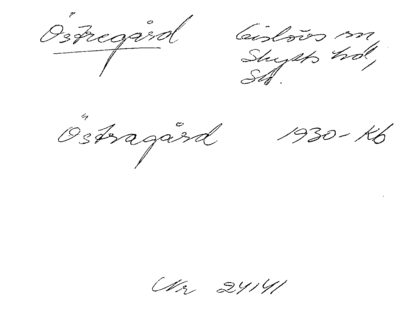 Östregård Gislövs sn,
Skytts hd,
Sk.
Östragård 1930-Kb
Nr 24141